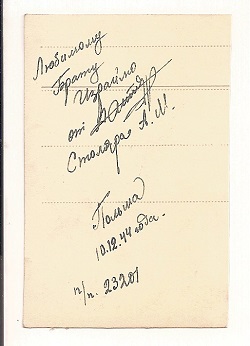 Любимому
Брату
Израйлю
от
Столяра А. И.
Польша
10.12.44 года.
п/п. 23201